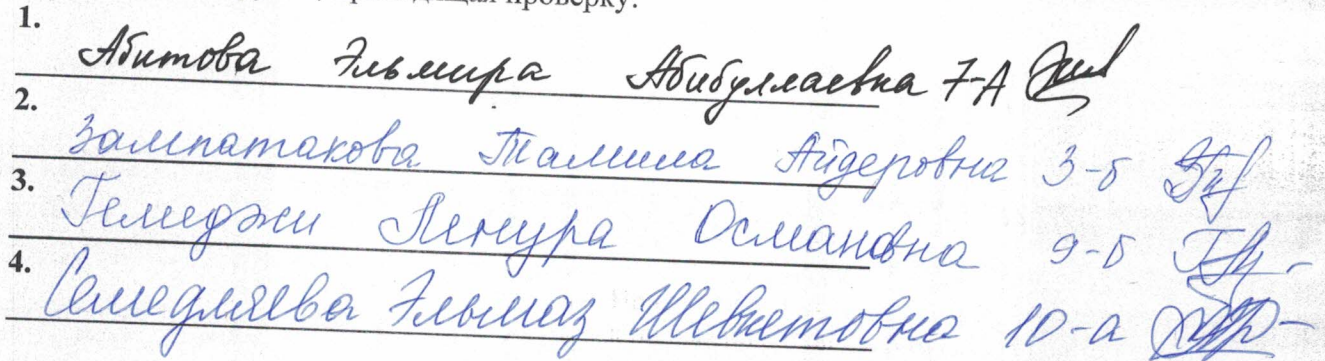 проверку:
1.
Абитова Эльмира Абибуллаевна 7-А
2.
Зампатакова Тамила Айдеровна 3-б
3.
Гемеджи Ленура Османовна 9-б
4.
Семедляева Эльмаз Шевкетовна 10-а